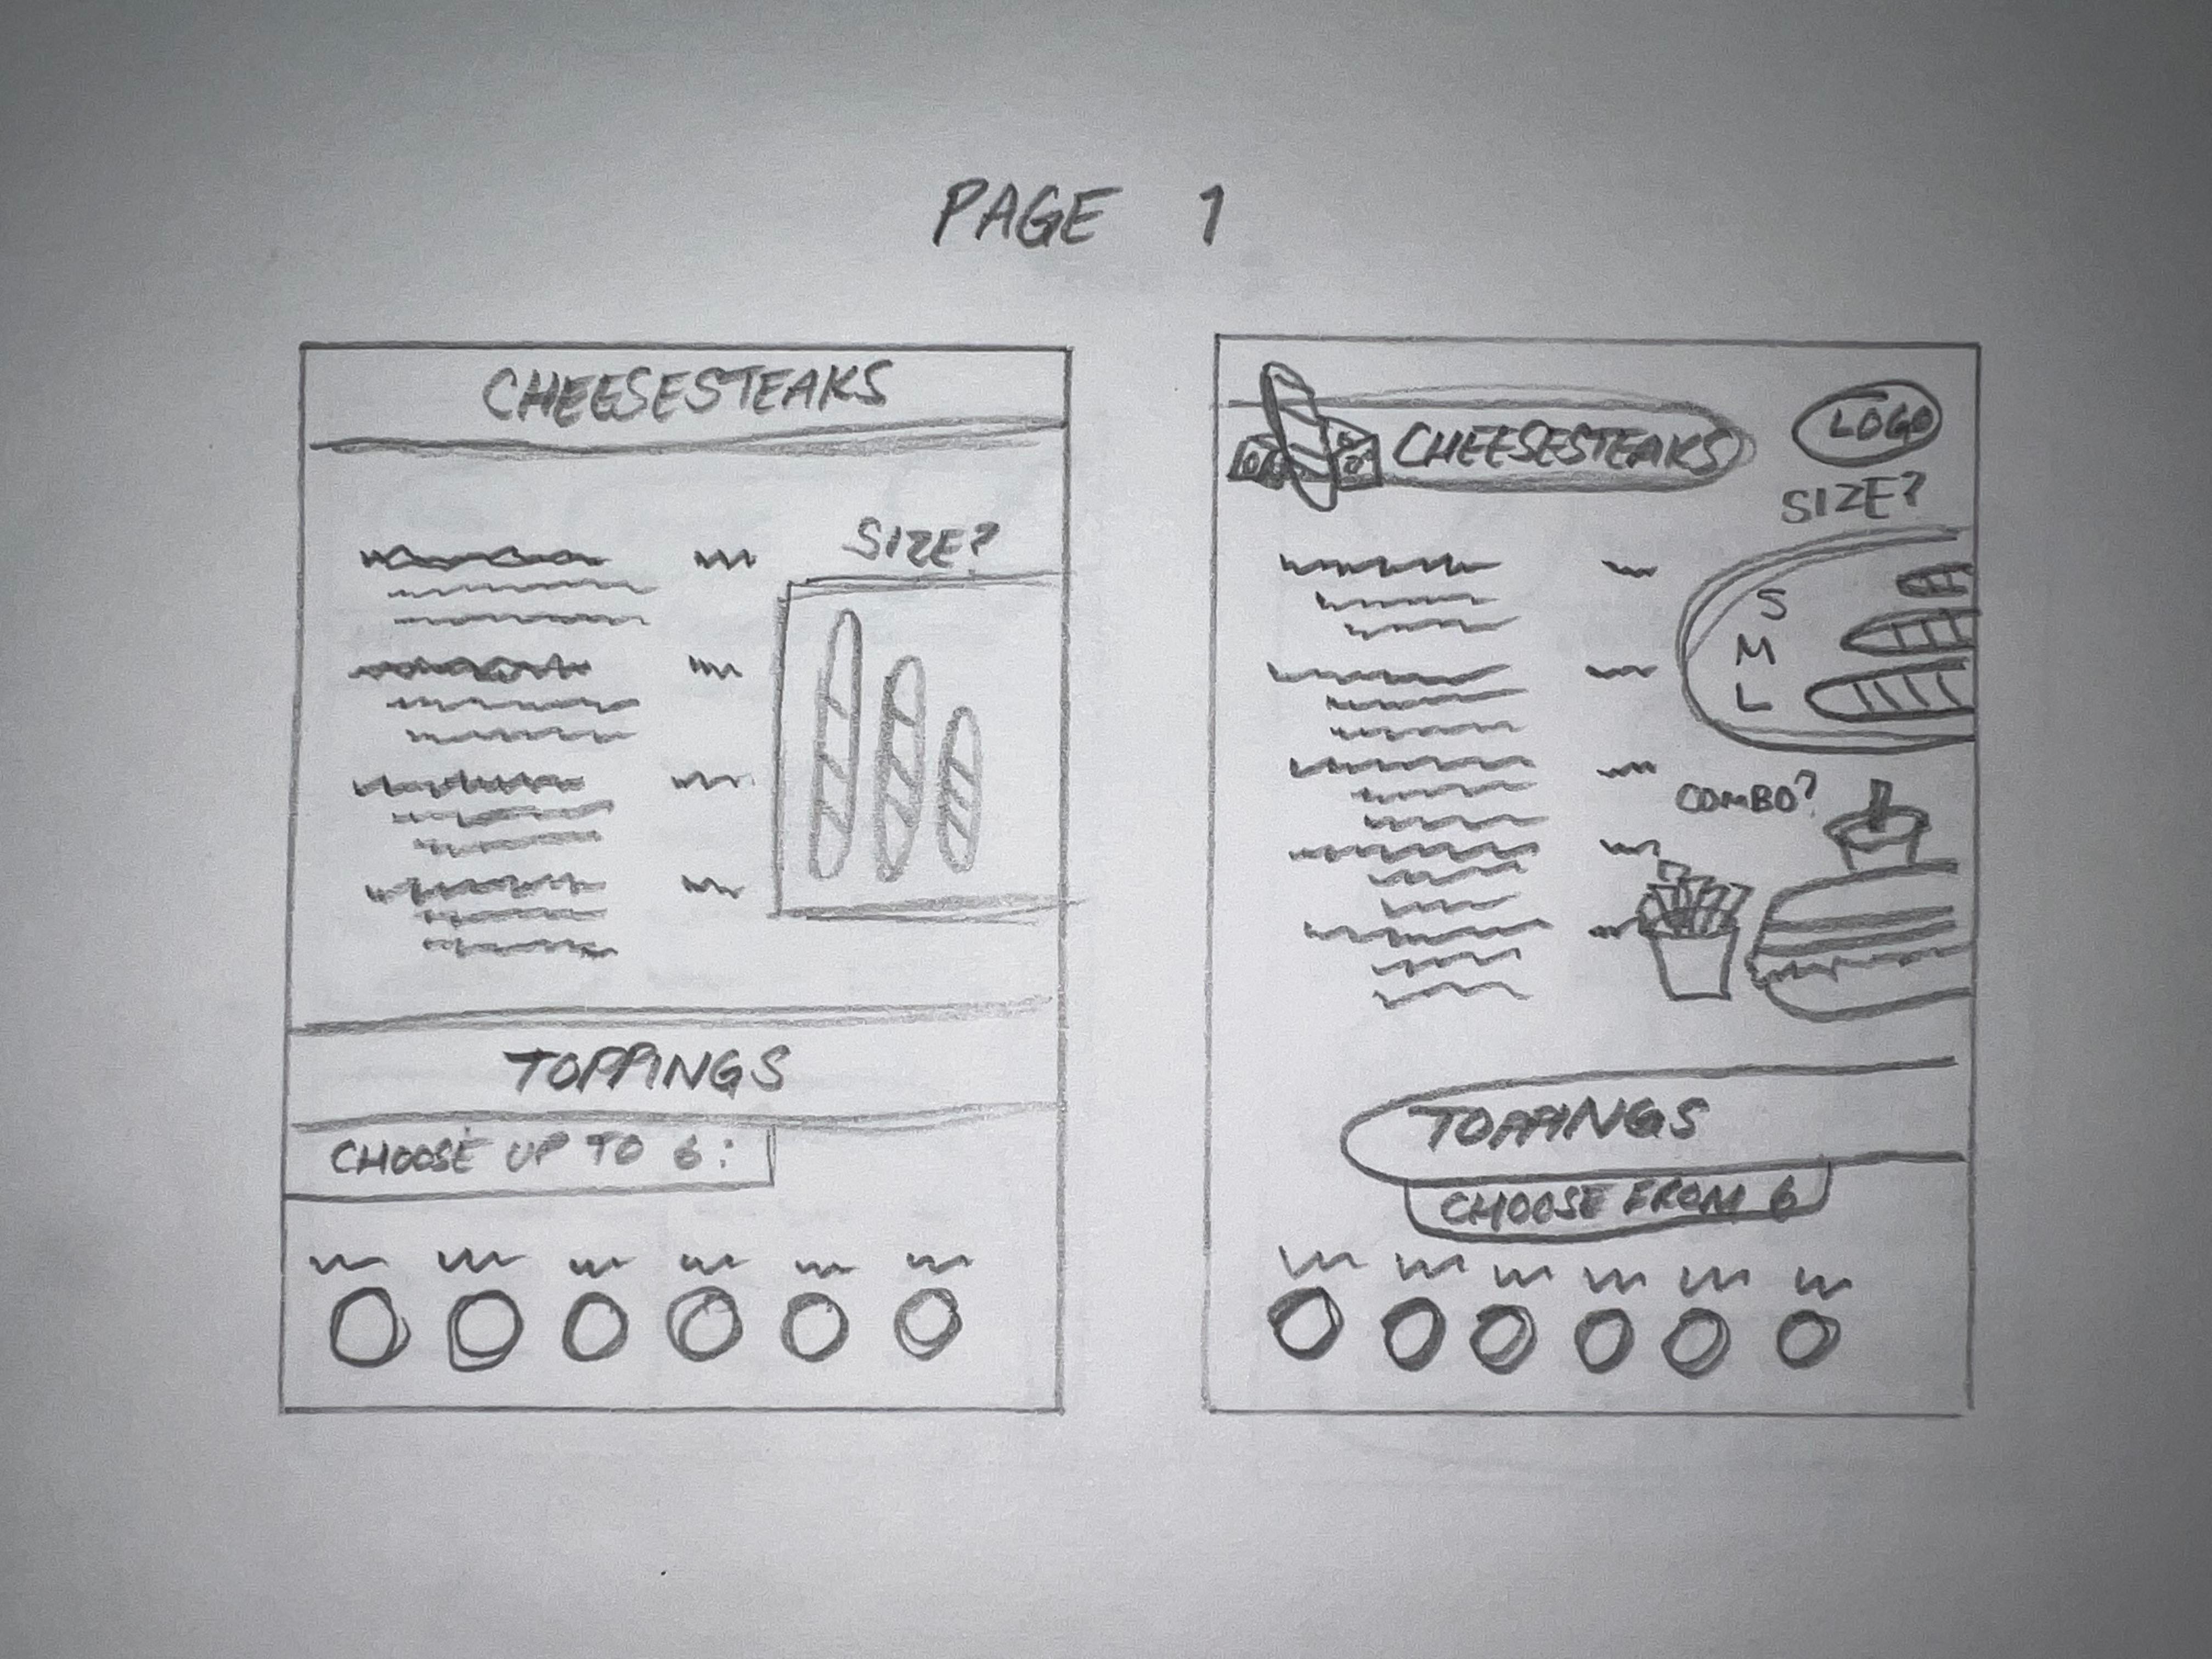 PAGE 1
CHEESESTEAKS
SIZE?
TOPPINGS
CHOOSE UP TO 6:
CHEESESTEAKS
LOGO
SIZE?
S
M
L
COMBO?
TOPPINGS
CHOOSE FROM 6